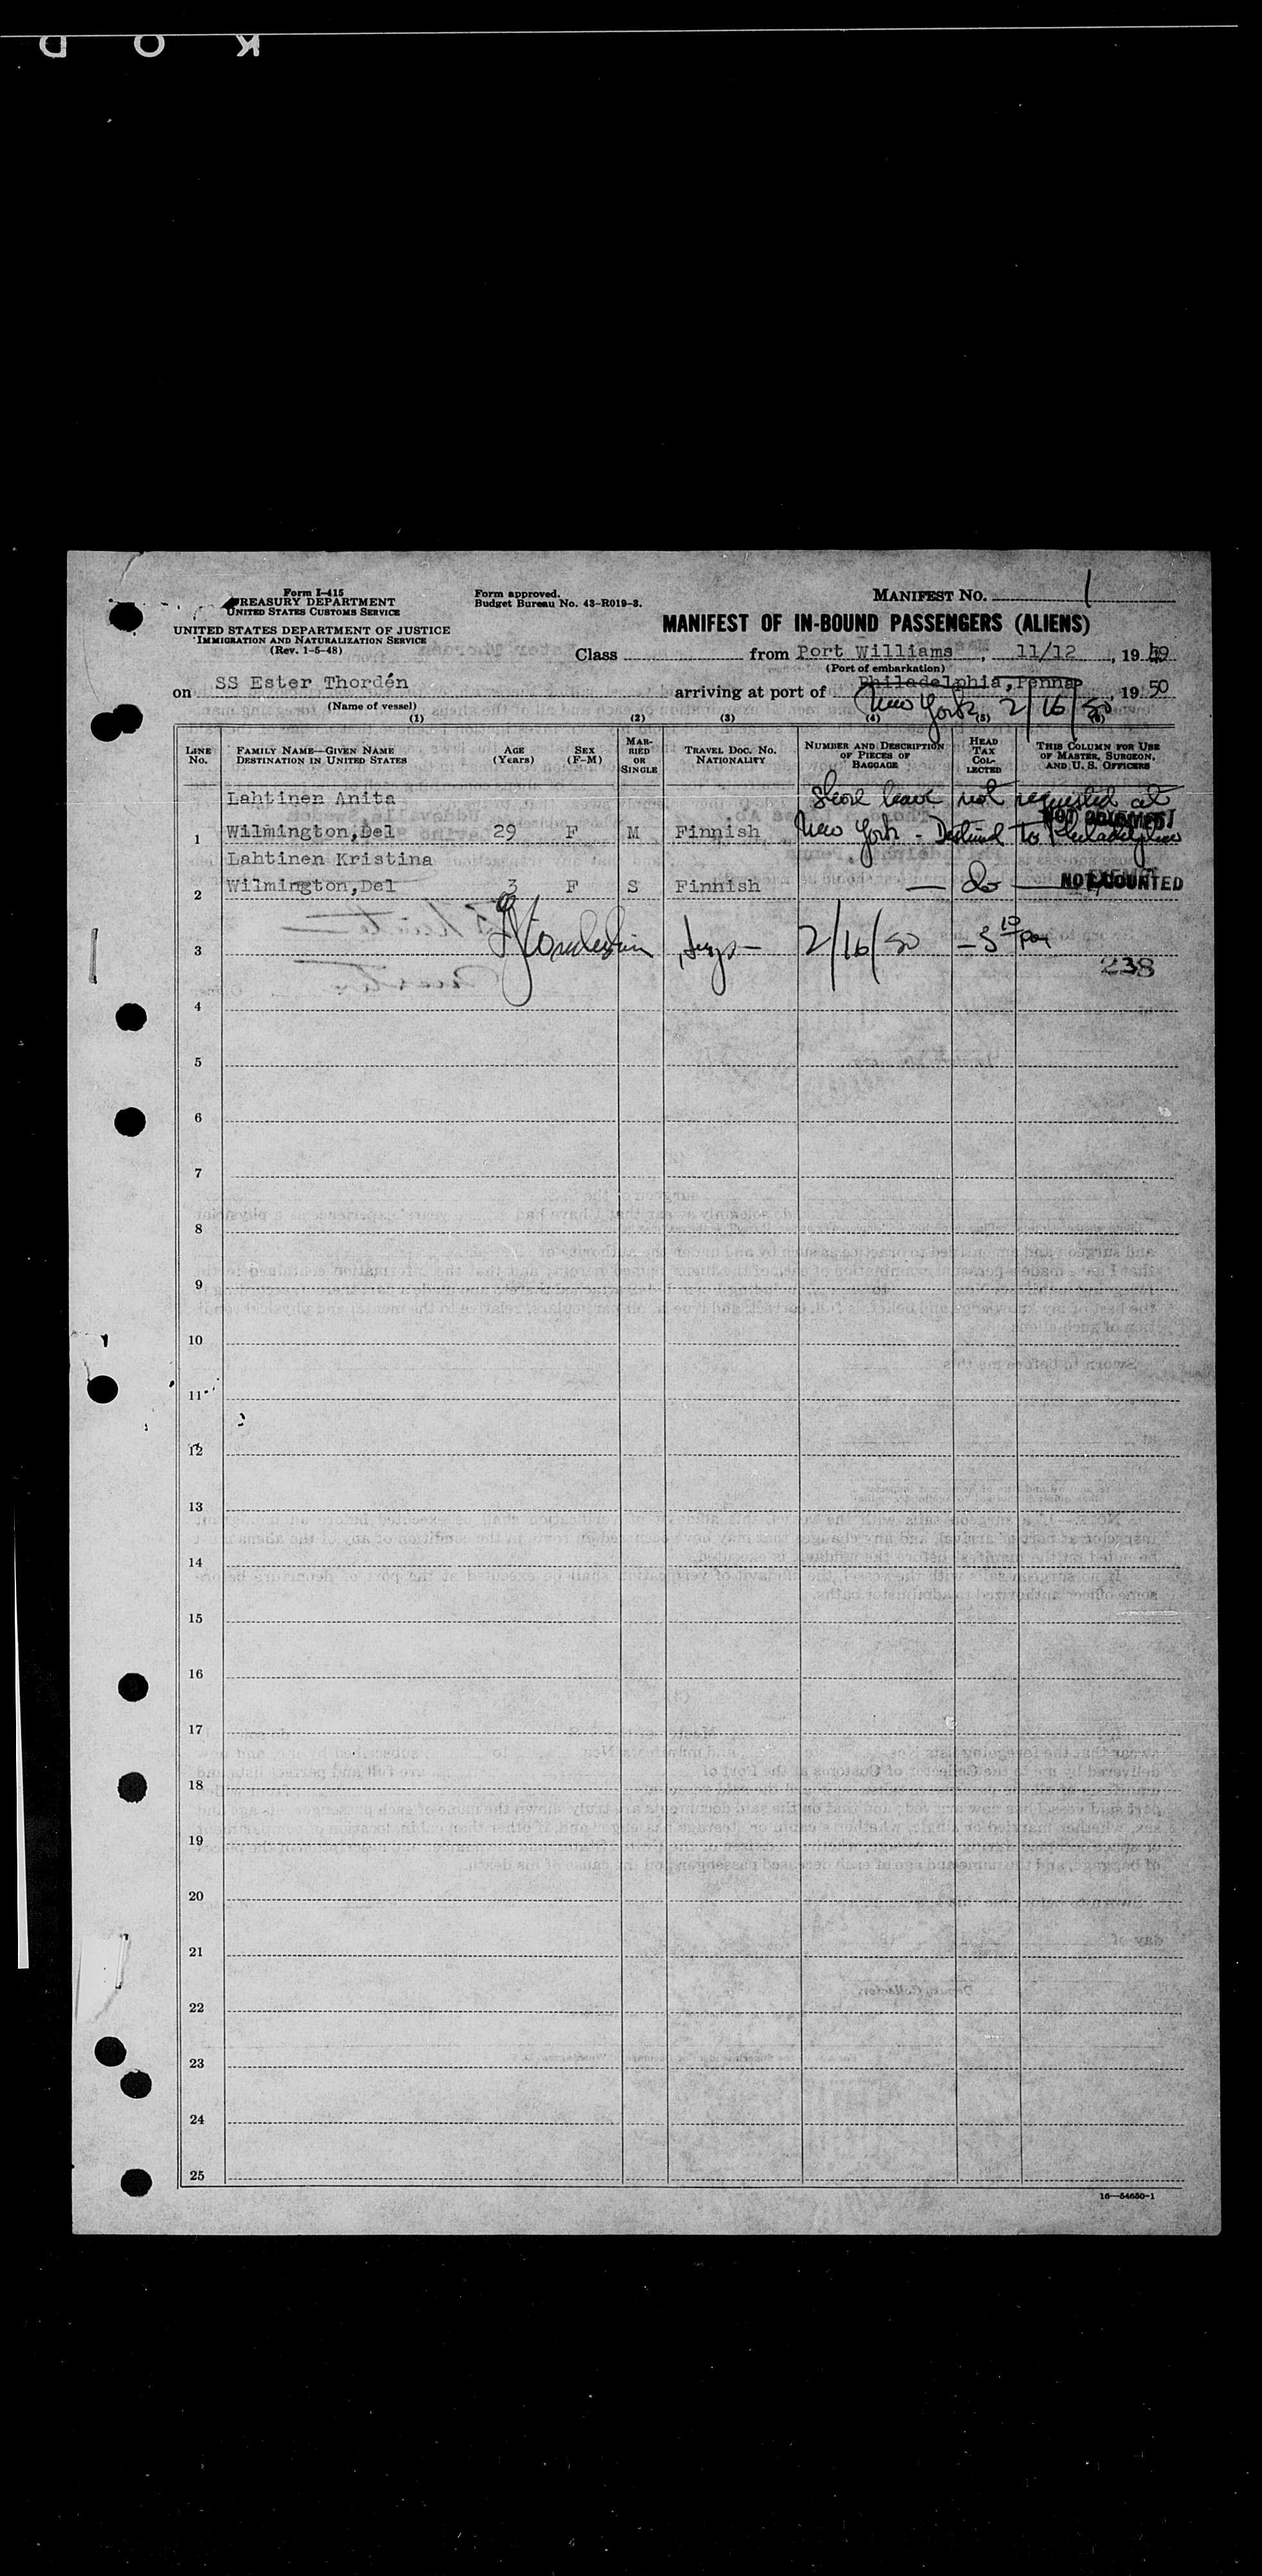 K O D
Form I-415
TREASURY DEPARTMENT
UNITED STATES CUSTOMS SERVICE
UNITED STATES DEPARTMENT OF JUSTICE
IMMIGRATION AND NATURALIZATION SERVICE
(Rev. 1-5-48)
Form approved.
Budget Bureau No. 43-R019-3.
MANIFEST NO. 1
MANIFEST OF IN-BOUND PASSENGERS (ALIENS)
Class from Port Williams, 11/12, 19 49
(Port of embarkation)
on SS Ester Thordén arriving at port of Philadelphia, Penna, 19 50
(Name of vessel) New York 2/16/50
(1) (2) (3) (4) (5) (6)
LINE No. FAMILY NAME—GIVEN NAME DESTINATION IN UNITED STATES AGE (Years) SEX (F-M) MARRIED OR SINGLE TRAVEL DOC. NO. NATIONALITY NUMBER AND DESCRIPTION OF PIECES OF BAGGAGE HEAD TAX COLLECTED THIS COLUMN FOR USE OF MASTER, SURGEON, AND U. S. OFFICERS
Lahtinen Anita Shore leave not requested at
1 Wilmington,Del 29 F M Finnish New York - Destined to Philadelphia
Lahtinen Kristina
2 Wilmington,Del 3 F S Finnish — do — NOT COUNTED
3 2/16/50
238
4
5
6
7
8
9
10
11
12
13
14
15
16
17
18
19
20
21
22
23
24
25
16—54650-1